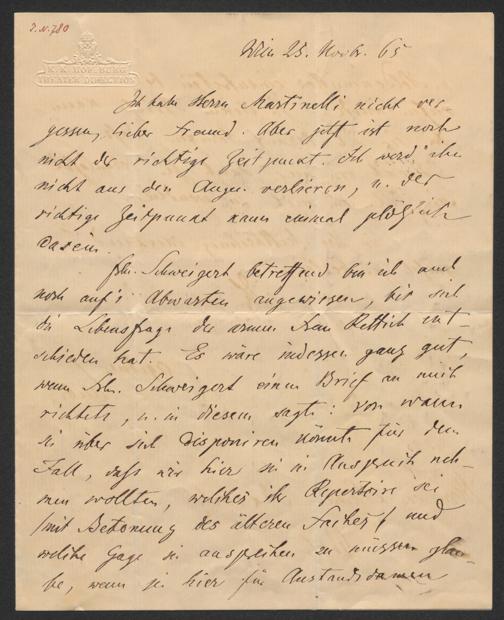 I.N.780
K.K. HOFBURG-
THEATER DIRECTION
Wien 25. Novbr. 65
Ich habe Herrn Martinelli nicht ver
gessen, lieber Freund. Aber jetzt ist noch
nicht der richtige Zeitpunkt. Ich werd' ihn
nicht aus den Augen verlieren, u. der
richtige Zeitpunkt kann einmal plötzlich
dasein.
Frln. Schweigert betreffend bin ich auch
noch auf's Abwarten angewiesen, bis sich
die Lebensfrage der armen Frau Rettich ent-
schieden hat. Es wäre indessen ganz gut,
wenn Frln. Schweigert einen Brief an mich
richtete, u. in diesem sagte: von wann
sie über sich disponiren könnte für den
Fall, daß wir hier sie in Anspruch neh-
men wollten, welches ihr Repertoire sei
/mit Betonung des älteren Faches/ und
welche Gage sie ansprechen zu müssen glau-
be, wenn sie hier für Anstandsdamen